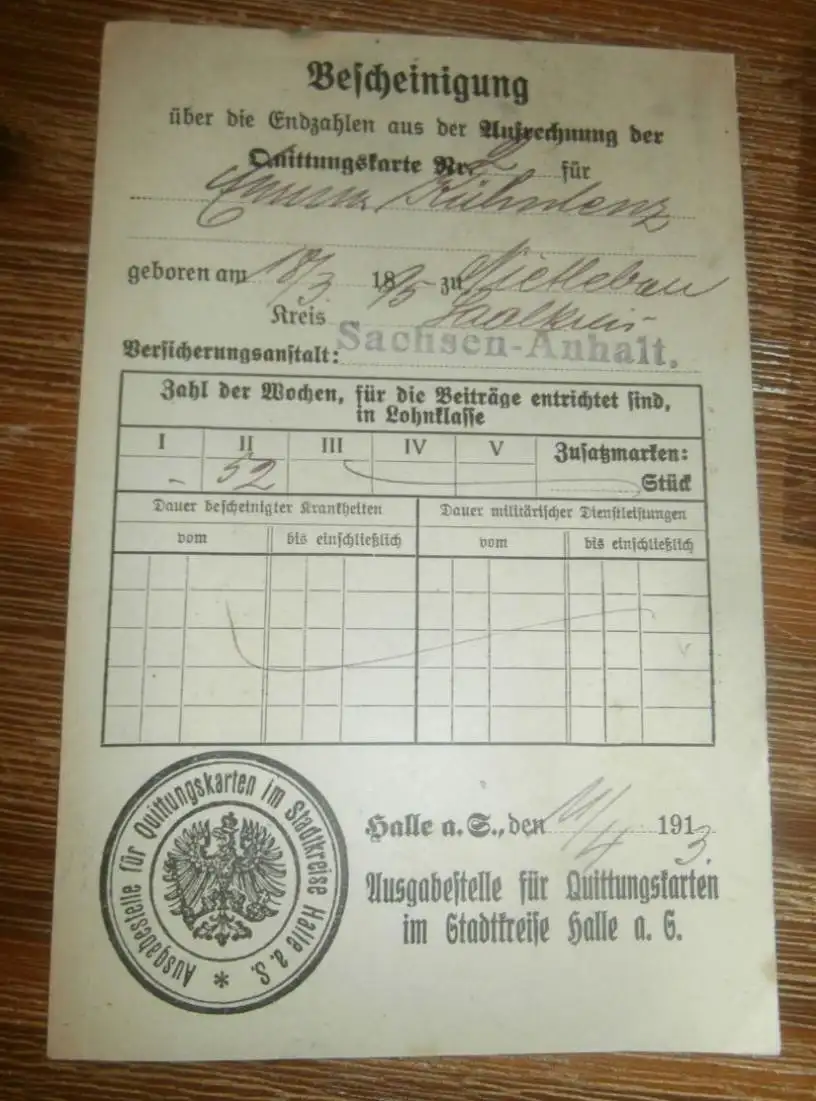 Bescheinigung
über die Endzahlen aus der Aufrechnung der
Quittungskarte Nr. 2 für
Emma Kühnlenz
geboren am 18/3 1895 zu Nietleben
Kreis Saalkreis
Versicherungsanstalt: Sachsen-Anhalt.
Zahl der Wochen, für die Beiträge entrichtet sind,
in Lohnklasse
I II III IV V Zusatzmarken:
- 52 Stück
Dauer bescheinigter Krankheiten Dauer militärischer Dienstleistungen
vom bis einschließlich vom bis einschließlich
Halle a. S., den 11/4 1913
Ausgabestelle für Quittungskarten
im Stadtkreise Halle a. S.
Ausgabestelle für Quittungskarten im Stadtkreise Halle a. S. *